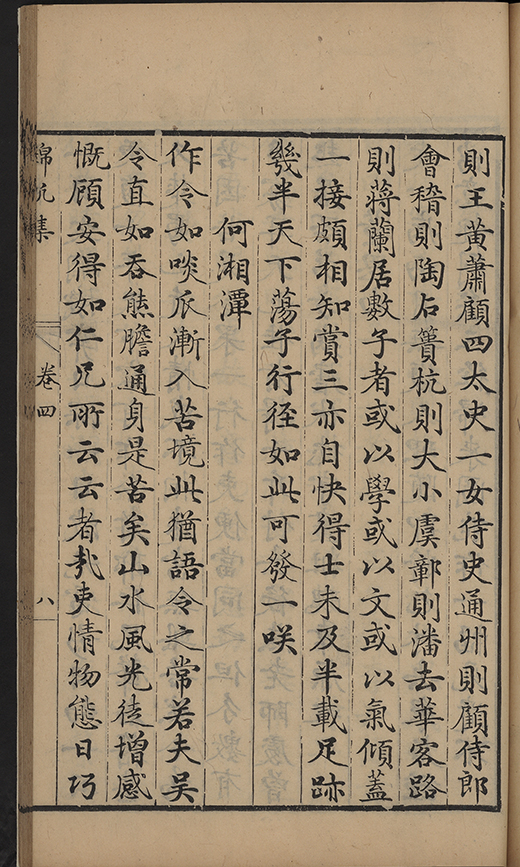 則王黄蕭顧四太史一女侍史通州則顧侍郎
會稽則陶石簣杭則大小虞鄣則潘去華客路
則蔣蘭居數子者或以學或以文或以氣傾蓋
一接頗相知賞三亦自快得士未及半載足跡
幾半天下蕩子行徑如此可發一咲
何湘潭
作令如啖瓜漸入苦境此猶語令之常若夫吴
令直如吞熊膽通身是苦矣山水風光徒增感
慨顧安得如仁兄所云云者哉吏情物態日巧
錦㠶集
卷四
八